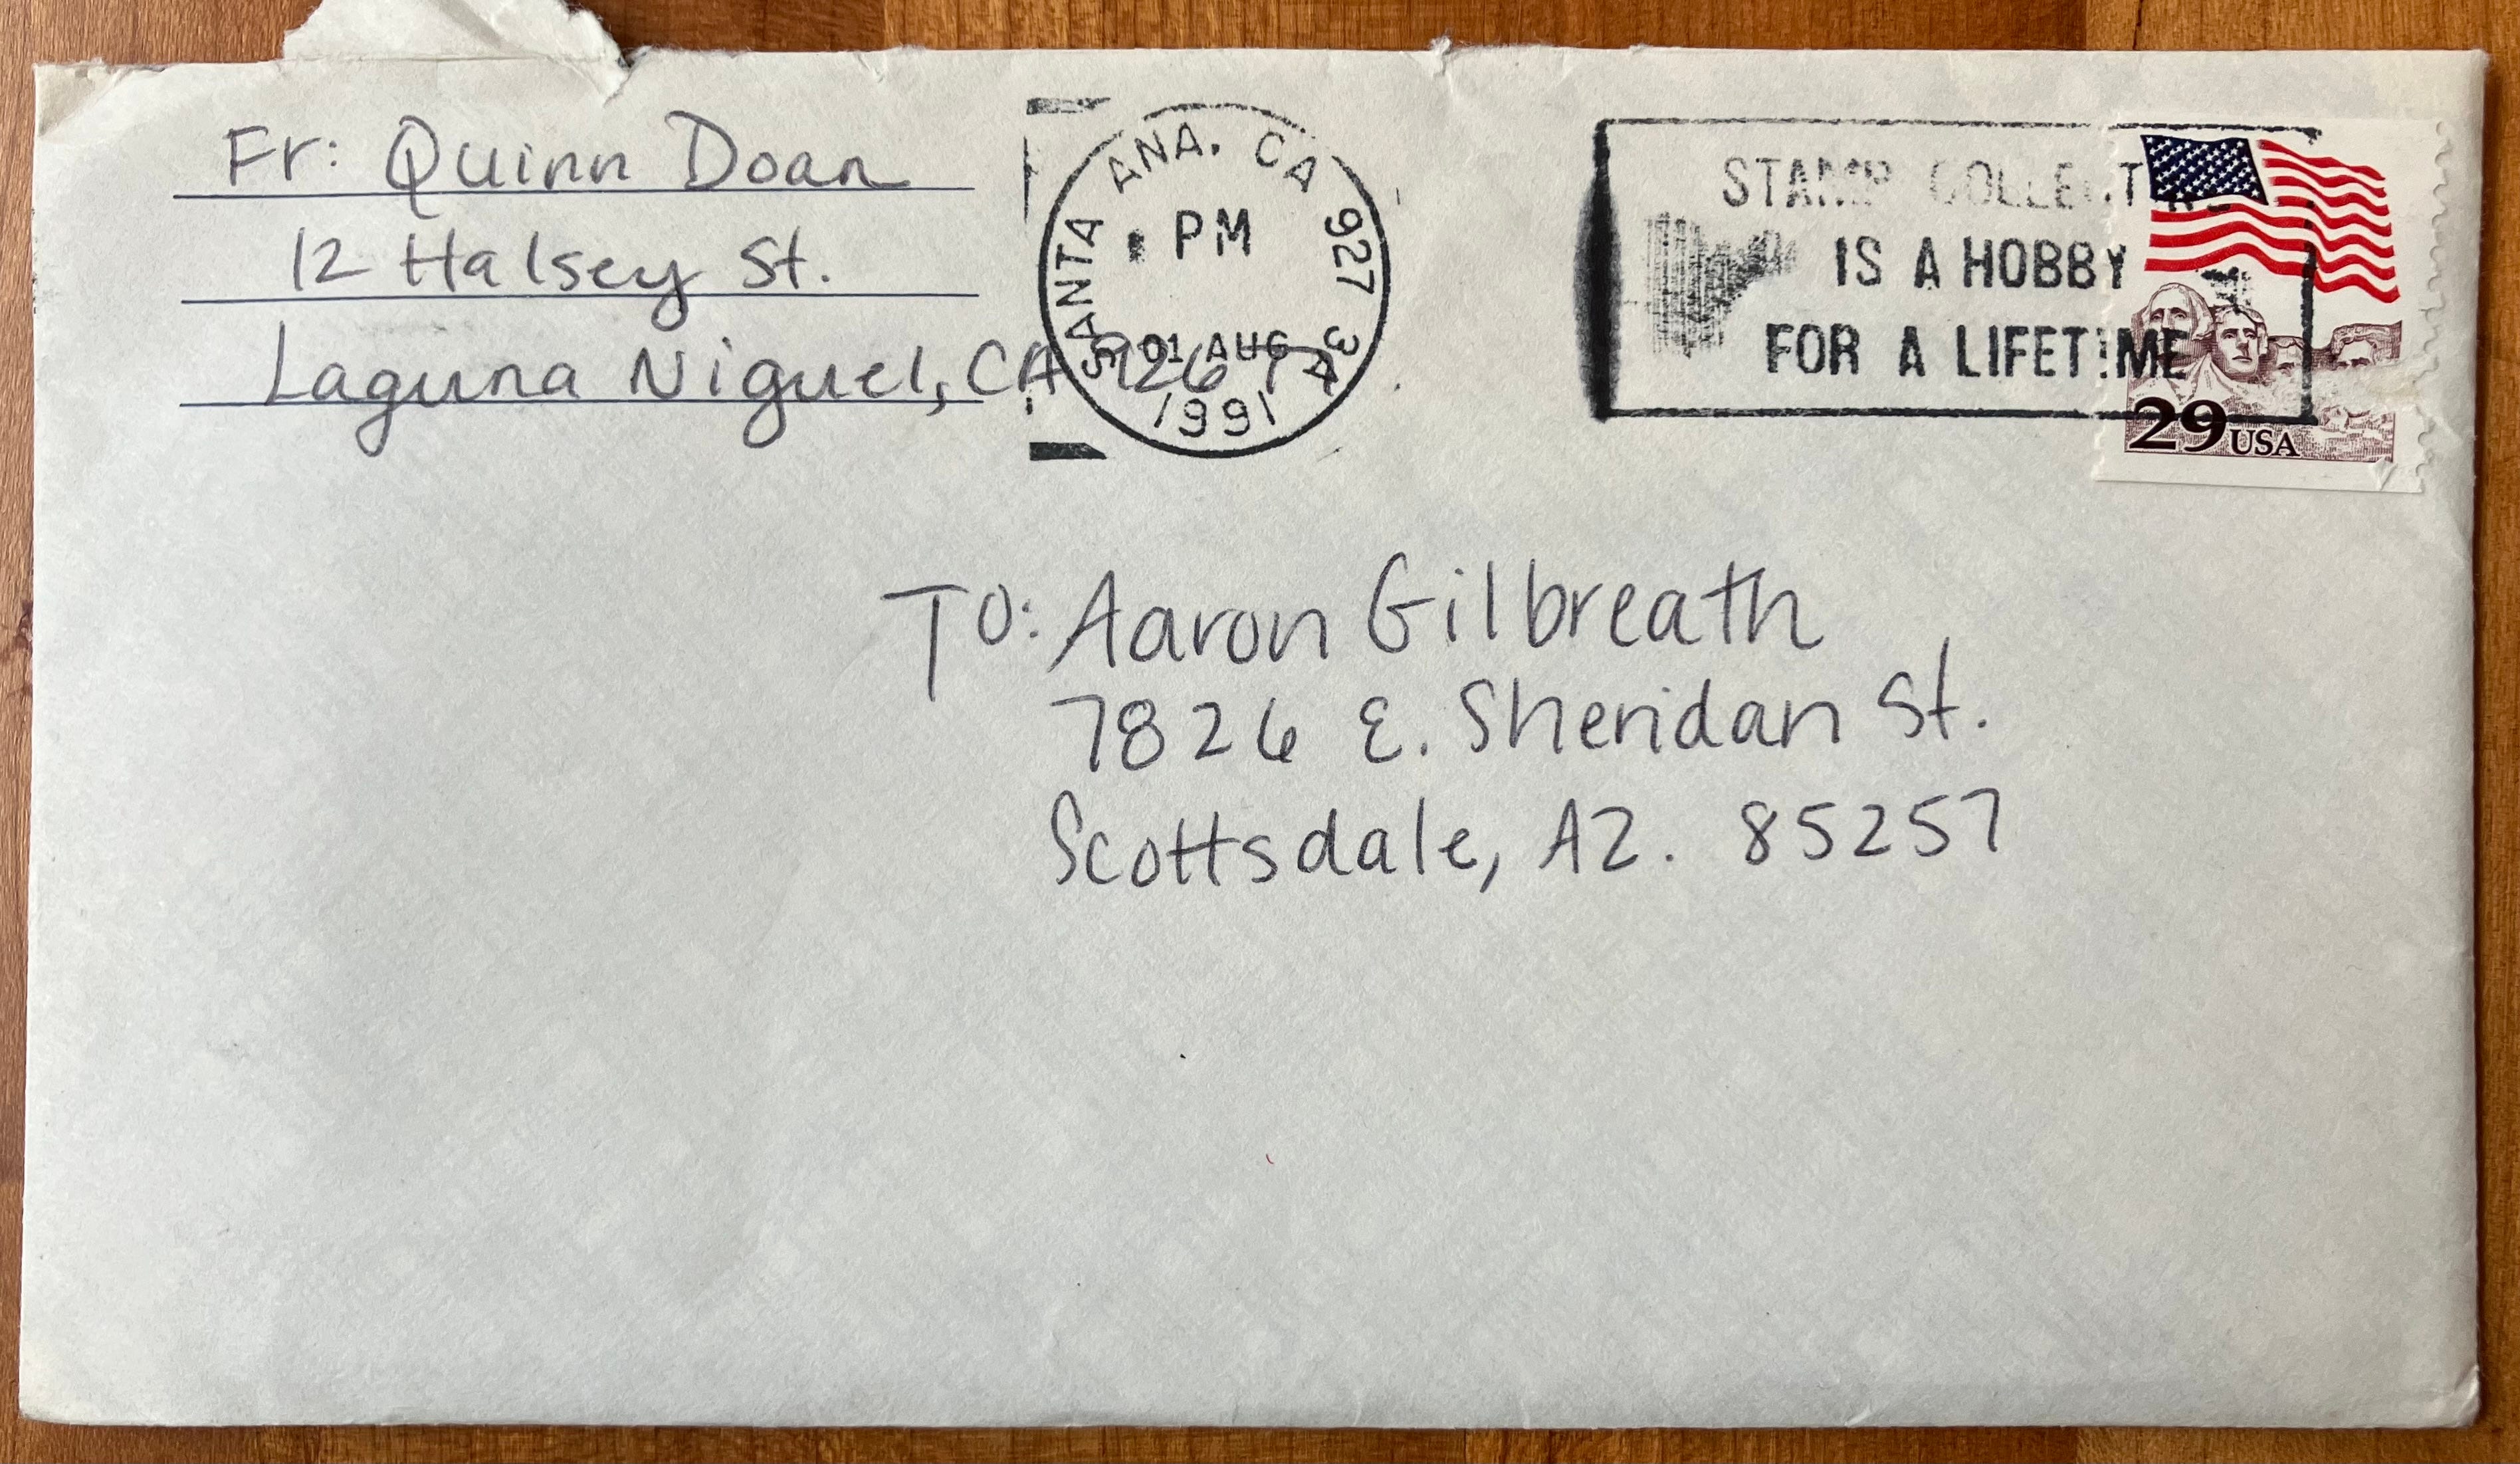 Fr: Quinn Doan
12 Halsey St.
Laguna Niguel, CA
SANTA ANA. CA 927
PM
01 AUG
1991
STAMP COLLECTING
IS A HOBBY
FOR A LIFETIME
29 USA
To: Aaron Gilbreath
7826 E. Sheridan St.
Scottsdale, AZ. 85257